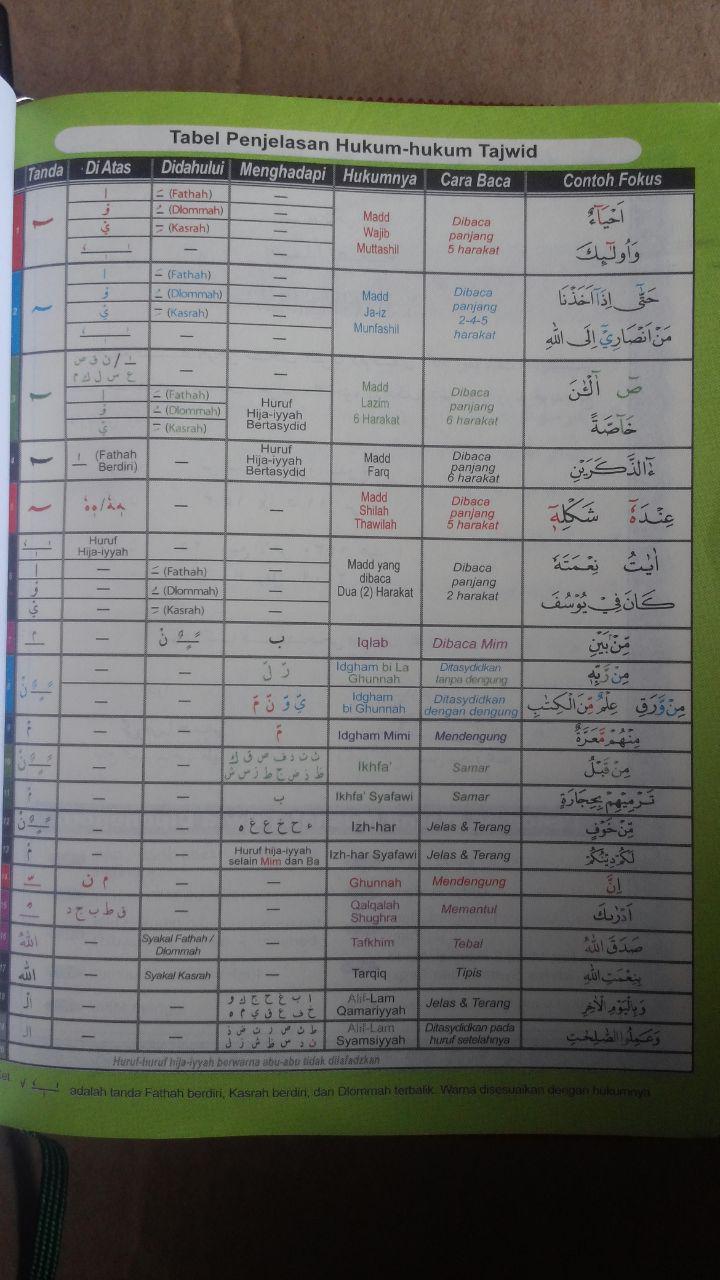 Tabel Penjelasan Hukum-hukum Tajwid
Tanda Di Atas Didahului Menghadapi Hukumnya Cara Baca Contoh Fokus
1 ا (Fathah) — Madd Wajib Muttashil Dibaca panjang 5 harakat اَحْيَآءٌ
وْ (Dlommah) —
يْ (Kasrah) — وَاُولٰۤىِٕكَ
— —
2 ا (Fathah) — Madd Ja-iz Munfashil Dibaca panjang 2-4-5 harakat حَتّٰٓى اِذَآ اَخَذْنَا
وْ (Dlommah) —
يْ (Kasrah) — مَنْ اَنْصَارِيْٓ اِلَى اللهِ
— —
3 ن ق ص — — Madd Lazim 6 Harakat Dibaca panjang 6 harakat صۤ آٰلْـٰٔنَ
ع س ل ك م
ا (Fathah) Huruf Hija-iyyah Bertasydid
وْ (Dlommah)
يْ (Kasrah) خَآصَّةً
(Fathah Berdiri) — Huruf Hija-iyyah Bertasydid Madd Farq Dibaca panjang 6 harakat ءٰۤالذَّكَرَيْنِ
— — Madd Shilah Thawilah Dibaca panjang 5 harakat عِنْدَهٗٓ شَكْلِهٖٓ
Huruf Hija-iyyah — — Madd yang dibaca Dua (2) Harakat Dibaca panjang 2 harakat اٰيٰتُ نِعْمَتَهٗ
ا — (Fathah) —
وْ — (Dlommah) — كَانَ فِيْ يُوْسُفَ
يْ — (Kasrah) —
م — نْ ب Iqlab Dibaca Mim مِنْۢ بَيْنِ
نْ — — رّ لّ Idgham bi La Ghunnah Ditasydidkan tanpa dengung مِنْ رَّبِّهٖ
— — يّ وّ نّ مّ Idgham bi Ghunnah Ditasydidkan dengan dengung مِنْ وَّرَقِ عِلْمٌ مِّنَ الْكِتٰبِ
مْ — — مّ Idgham Mimi Mendengung مِنْهُمْ مَّعَرَّةٌ
10 نْ — — ت ث د ف ص ق ك Ikhfa' Samar مِنْ قَبْلُ
ظ ذ ض ج ط ز س ش
11 مْ — — ب Ikhfa' Syafawi Samar تَرْمِيْهِمْ بِحِجَارَةٍ
12 نْ — — ء ح خ ع غ ه Izh-har Jelas & Terang مِنْ خَوْفٍ
13 مْ — — Huruf hija-iyyah selain Mim dan Ba Izh-har Syafawi Jelas & Terang لَكُمْ دِيْنُكُمْ
م ن — — Ghunnah Mendengung اِنَّ
15 ق ط ب ج د — — Qalqalah Shughra Memantul اَدْرٰىكَ
16 الله — Syakal Fathah / Dlommah — Tafkhim Tebal صَدَقَ اللهُ
17 الله — Syakal Kasrah — Tarqiq Tipis بِنِعْمَتِ اللهِ
الْ — — ا ب غ ح ج ك و Alif-Lam Qamariyyah Jelas & Terang وَبِالْيَوْمِ الْاٰخِرِ
خ ف ع ق ي م ه
ال — — ط ث ص ر ت ض ذ Alif-Lam Syamsiyyah Ditasydidkan pada huruf setelahnya وَعَمِلُوا الصّٰلِحٰتِ
ن د س ظ ش ز ل
Huruf-huruf hija-iyyah berwarna abu-abu tidak dilafadzkan
adalah tanda Fathah berdiri, Kasrah berdiri, dan Dlommah terbalik. Warna disesuaikan dengan hukumnya